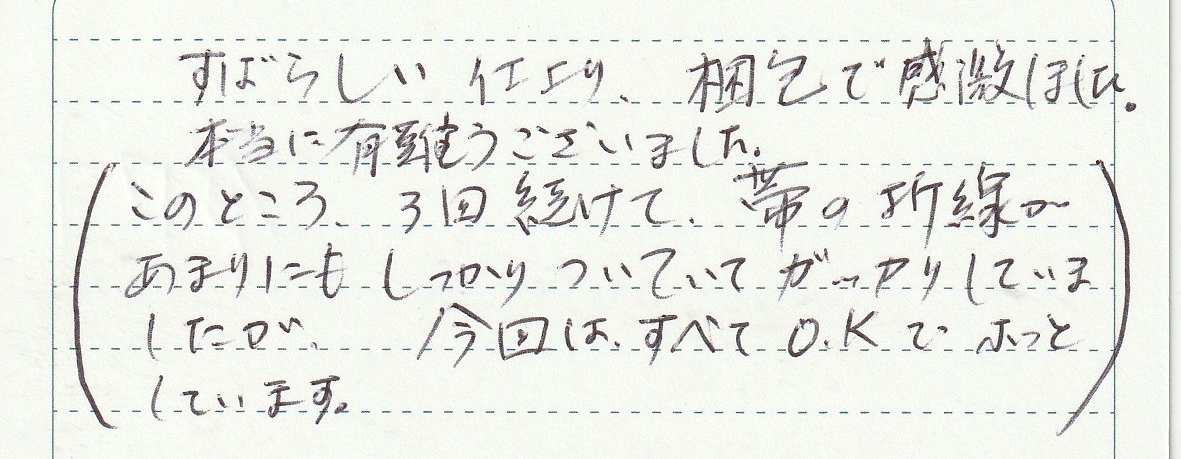 すばらしい仕上り、梱包で感激しました。
本当に有難うございました。
(このところ、3回続けて、帯の折線が
あまりにもしっかりついていてガッカリしていま
したが、今回は、すべてO.Kでホッと
しています。)